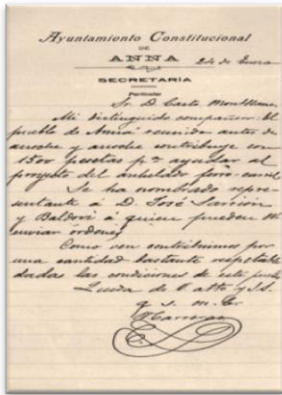 Ayuntamiento Constitucional
DE
ANNA
24 de Enero
SECRETARÍA
Particular
Sr. D. Carlo
Mi distinguido compañero: El
pueblo de Anna reunido antes de
anoche y anoche contribuye con
1500 pesetas pª ayudar al
proyecto del anhelado ferro-carril
Se ha nombrado repre-
sentante á D. José Sarrión
y Baldoví á quien pueden
enviar órdenes
Como ven contribuimos por
una cantidad bastante respetable
dadas las condiciones de este
Queda de V. affo y S.S.
q. s. m. b.